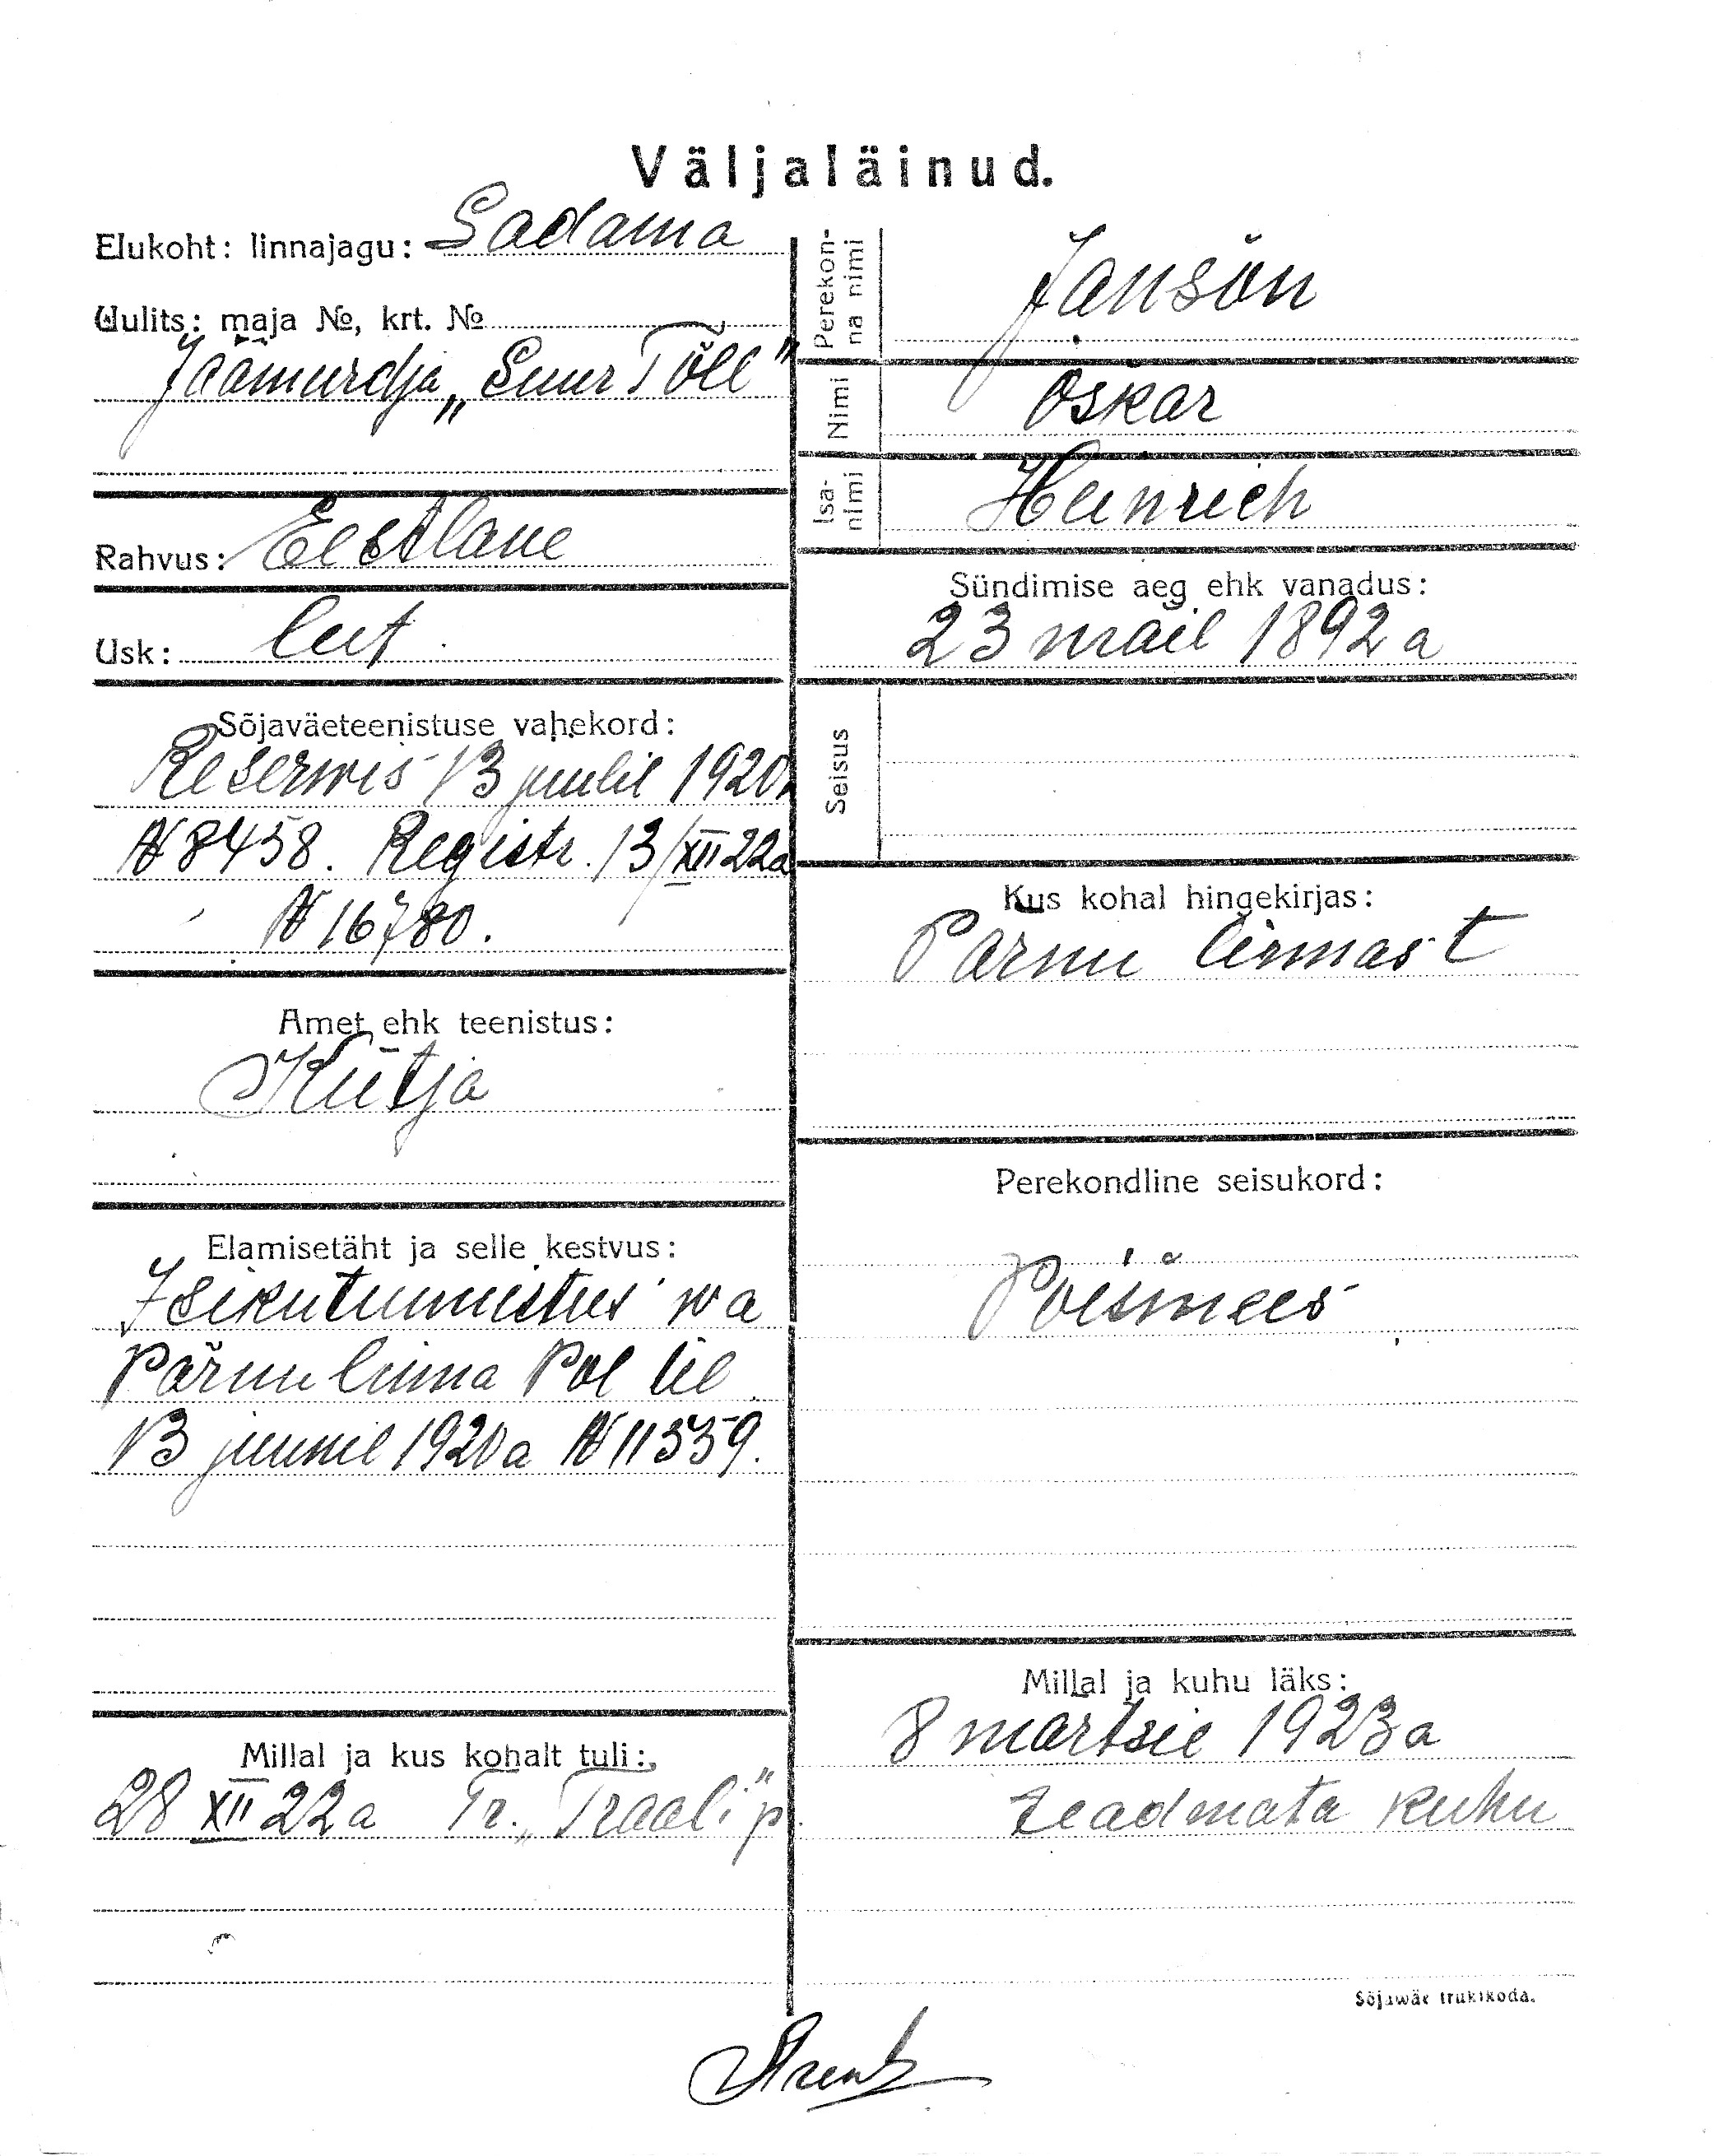 Väljaläinud.
Elukoht: linnajagu: Sadama
Uulits: maja №, krt. №
Jäämurdja „Suur Tõll"
Rahvus: Eestlane
Usk: lut.
Sõjaväeteenistuse vahekord:
Reserwis 13 juulil 1920a
№ 8458. Registr. 13/XII 22a
№ 16780.
Amet ehk teenistus:
Kütja
Elamisetäht ja selle kestvus:
Isikutunnistus wa
Pärnu linna Pol
13 juunil 1920a № 11559.
Millal ja kus kohalt tuli:
28 XII 22a Tr. „Traali" p.
Perekon-
na nimi
Janson
Nimi
Oskar
Isa-
nimi
Heinrich
Sündimise aeg ehk vanadus:
23 mail 1892 a
Seisus
Kus kohal hingekirjas:
Pärnu linnast
Perekondline seisukord:
Poismees
Millal ja kuhu läks:
8 märtsil 1923a
teadmata kuhu
Sõjawäe trükikoda.